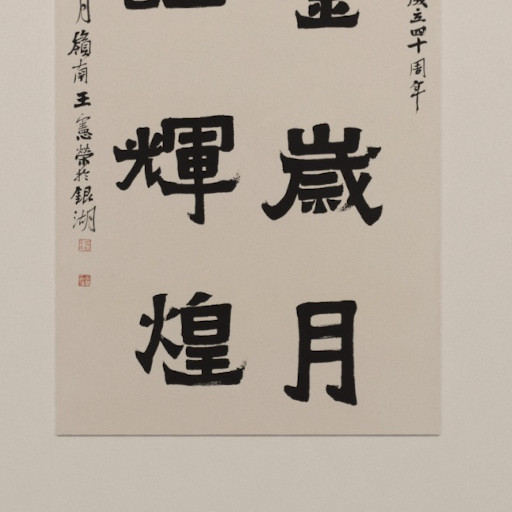 成立四十周年
金歲月
輝煌
月嶺南王憲榮於銀湖